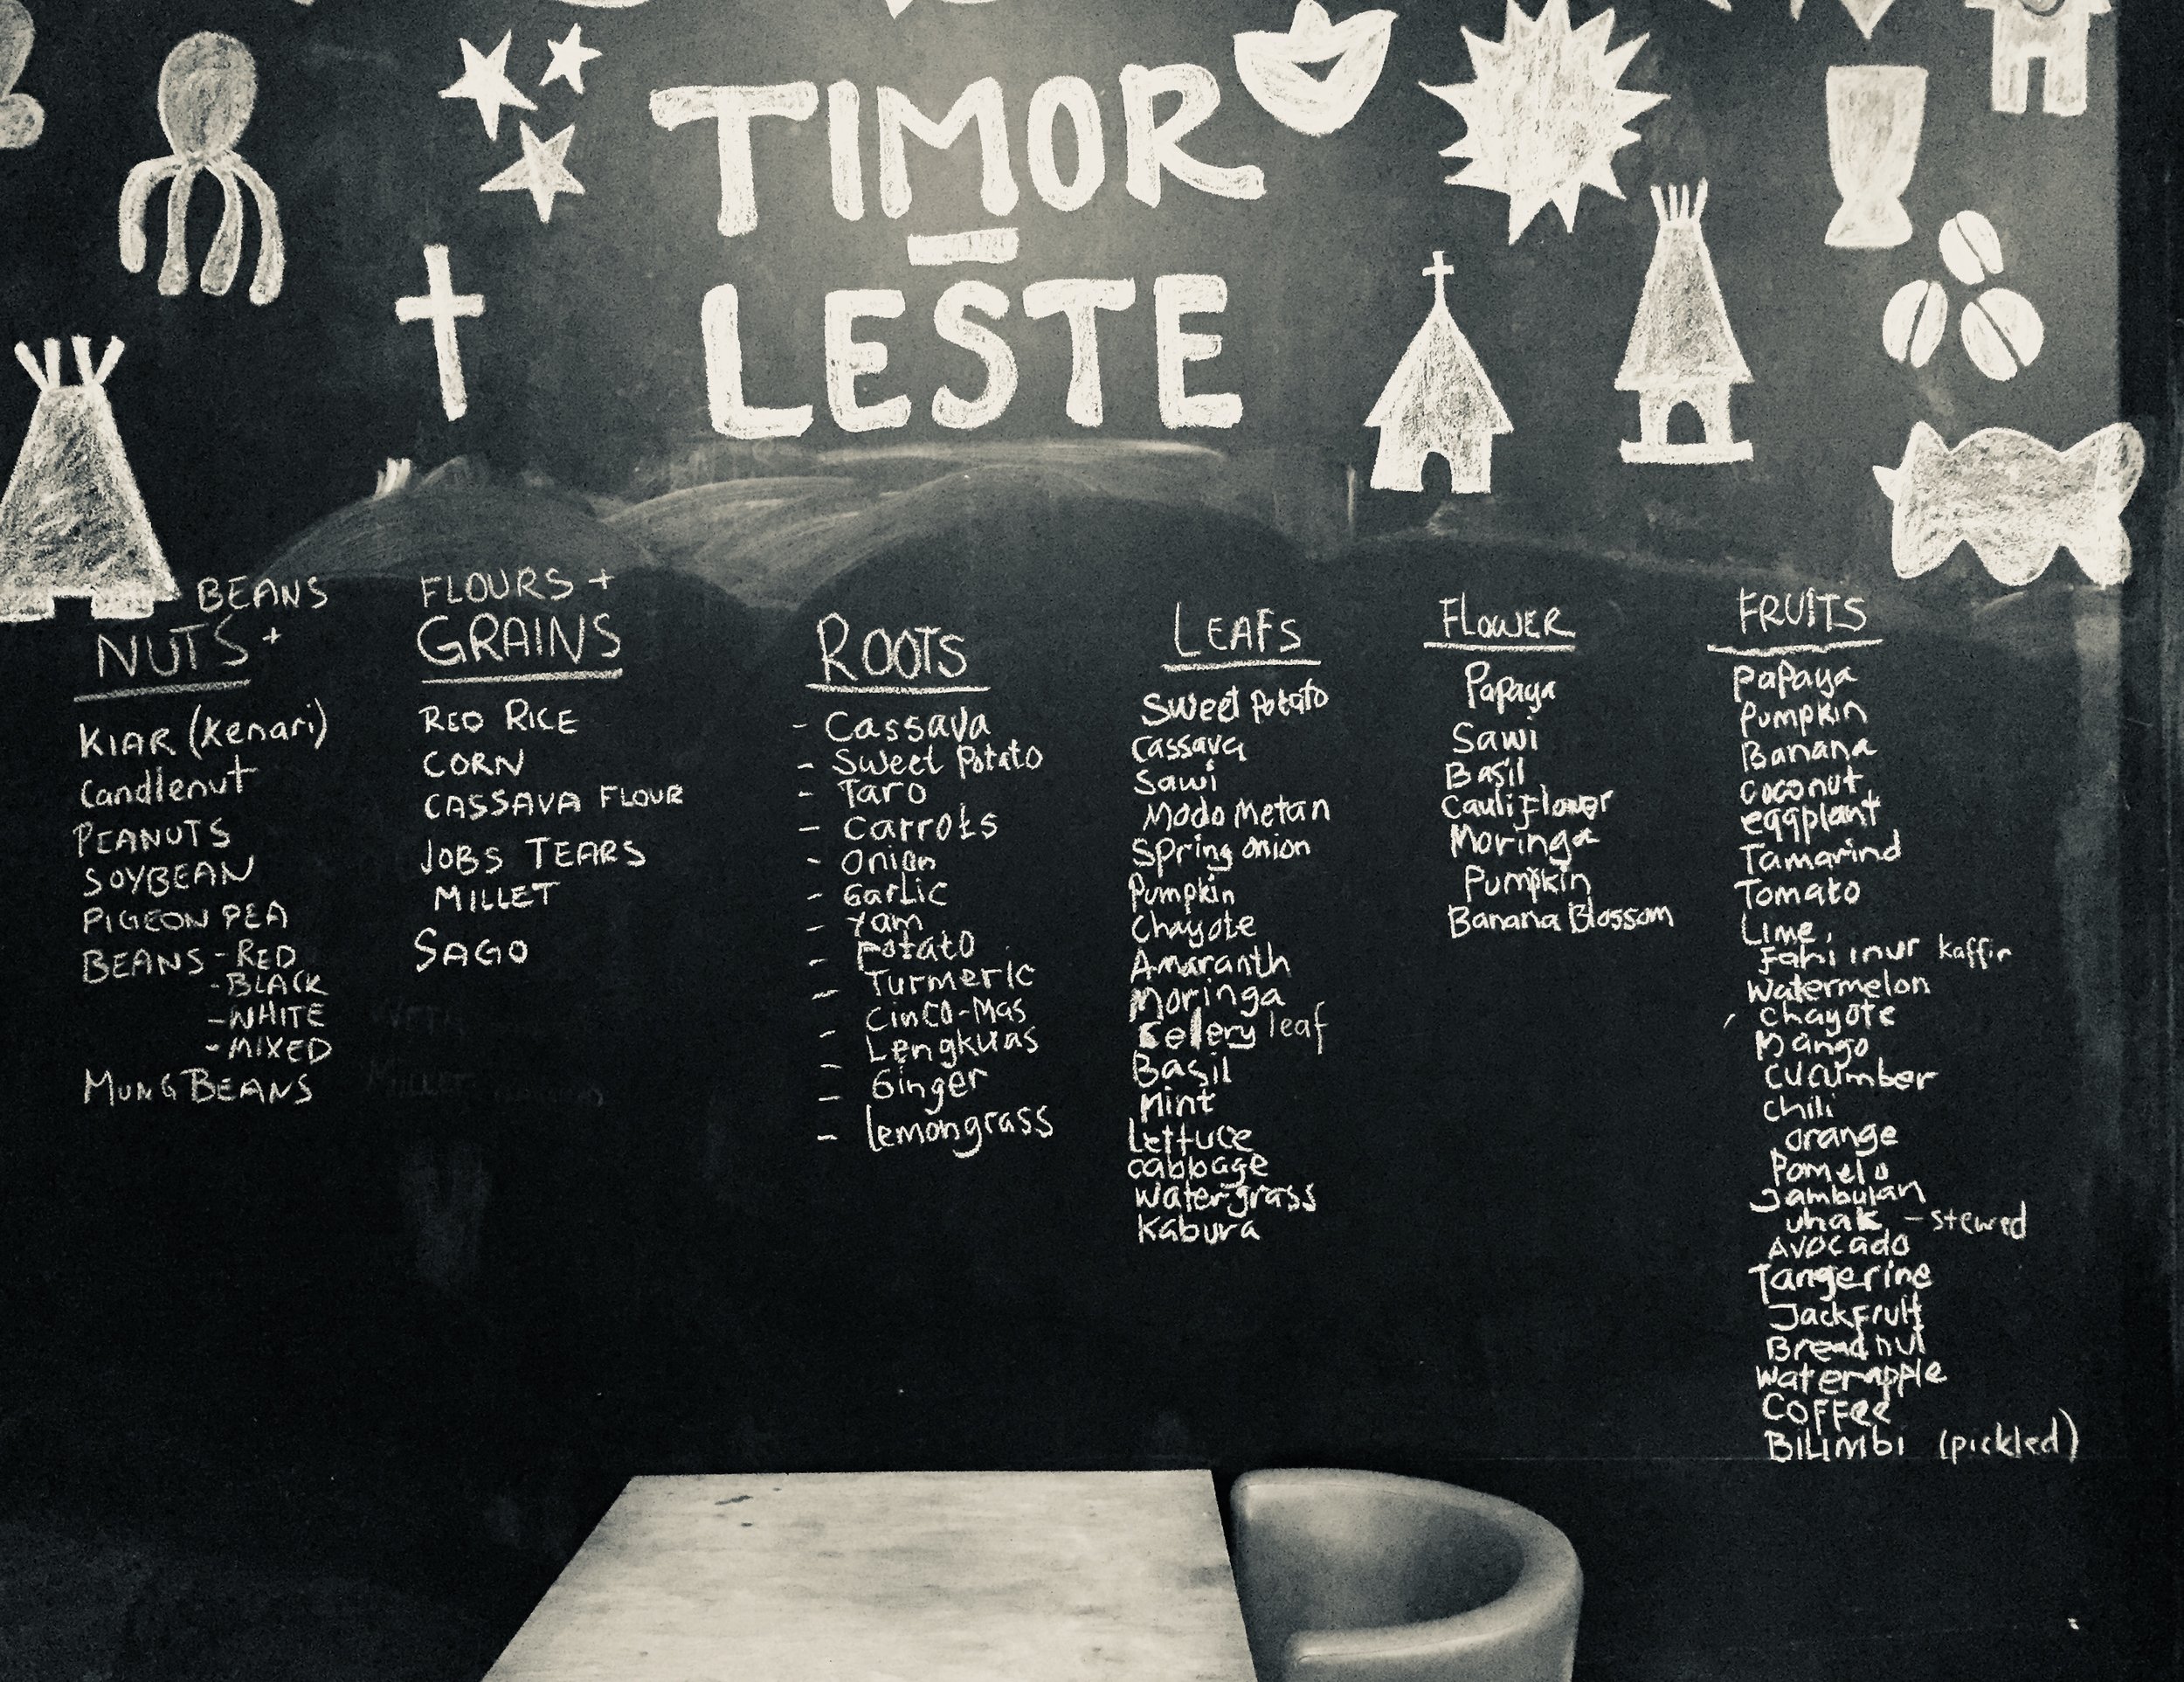 TIMOR
-
LESTE
BEANS
NUTS +
KIAR (Kenari)
Candlenut
PEANUTS
SOYBEAN
PIGEON PEA
BEANS - RED
- BLACK
- WHITE
- MIXED
MUNG BEANS
FLOURS +
GRAINS
RED RICE
CORN
CASSAVA FLOUR
JOBS TEARS
MILLET
SAGO
ROOTS
- Cassava
- Sweet Potato
- Taro
- Carrots
- Onion
- Garlic
- Yam
- Potato
- Turmeric
- Cinco-Mas
- Lengkuas
- Ginger
- lemongrass
LEAFS
Sweet Potato
Cassava
Sawi
Modo Metan
Spring Onion
Pumpkin
Chayote
Amaranth
Moringa
Celery leaf
Basil
Mint
Lettuce
cabbage
watergrass
Kabura
FLOWER
Papaya
Sawi
Basil
Cauliflower
Moringa
Pumpkin
Banana Blossom
FRUITS
Papaya
Pumpkin
Banana
coconut
eggplant
Tamarind
Tomato
Lime
Fahi inur kaffir
Watermelon
chayote
Mango
cucumber
Chili
orange
Pomelo
Jambulan
uhak - stewed
Avocado
Tangerine
Jackfruit
Breadnut
Waterapple
Coffee
BILIMBI (pickled)